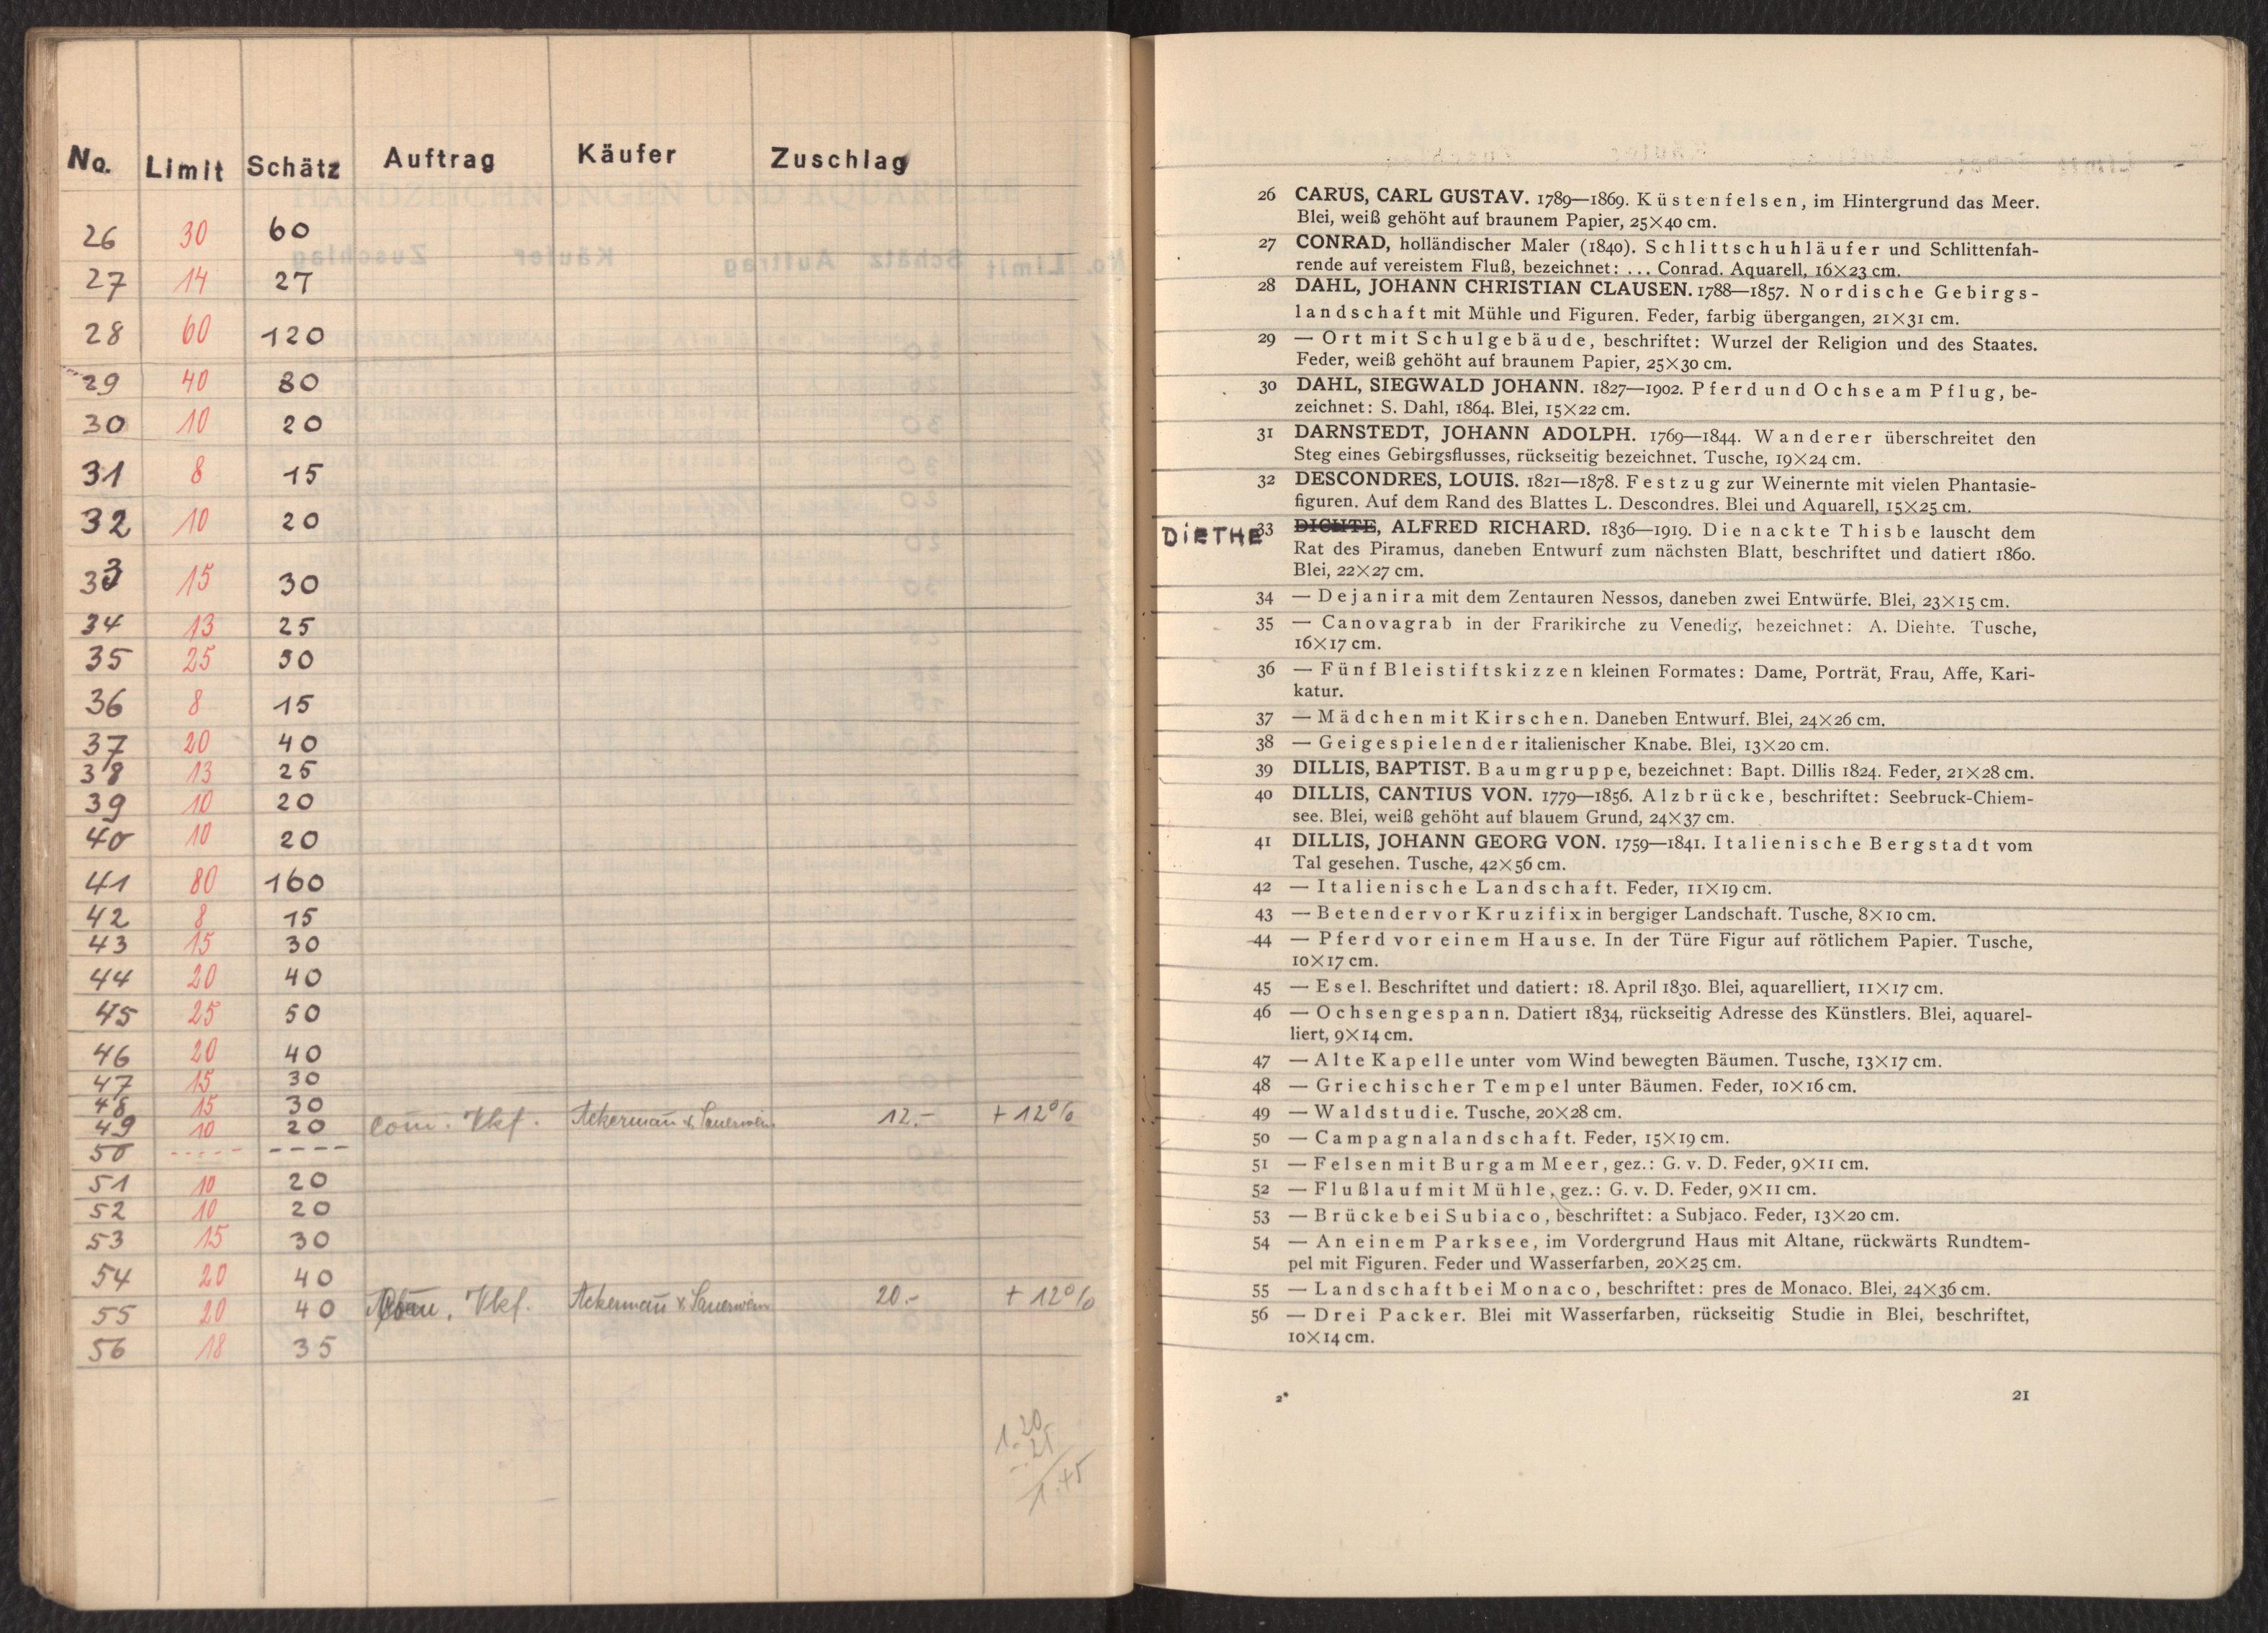 No. Limit Schätz Auftrag Käufer Zuschlag
26 30 60
27 14 27
28 60 120
29 40 80
30 10 20
31 8 15
32 10 20
33 15 30
34 13 25
35 25 50
36 8 15
37 20 40
38 13 25
39 10 20
40 10 20
41 80 160
42 8 15
43 15 30
44 20 40
45 25 50
46 20 40
47 15 30
48 15 30
49 10 20 Com. Vkf. Ackermañ & Sauerwein 12.- + 12%
50 ----- ----
51 10 20
52 10 20
53 15 30
54 20 40
55 20 40 Vkf. Ackermañ & Sauerwein 20.- + 12%
56 18 35
1.20
1.45
26 CARUS, CARL GUSTAV. 1789—1869. Küstenfelsen, im Hintergrund das Meer.
Blei, weiß gehöht auf braunem Papier, 25×40 cm.
27 CONRAD, holländischer Maler (1840). Schlittschuhläufer und Schlittenfah-
rende auf vereistem Fluß, bezeichnet: ... Conrad. Aquarell, 16×23 cm.
28 DAHL, JOHANN CHRISTIAN CLAUSEN. 1788—1857. Nordische Gebirgs-
landschaft mit Mühle und Figuren. Feder, farbig übergangen, 21×31 cm.
29 — Ort mit Schulgebäude, beschriftet: Wurzel der Religion und des Staates.
Feder, weiß gehöht auf braunem Papier, 25×30 cm.
30 DAHL, SIEGWALD JOHANN. 1827—1902. Pferd und Ochse am Pflug, be-
zeichnet: S. Dahl, 1864. Blei, 15×22 cm.
31 DARNSTEDT, JOHANN ADOLPH. 1769—1844. Wanderer überschreitet den
Steg eines Gebirgsflusses, rückseitig bezeichnet. Tusche, 19×24 cm.
32 DESCONDRES, LOUIS. 1821—1878. Festzug zur Weinernte mit vielen Phantasie-
figuren. Auf dem Rand des Blattes L. Descondres. Blei und Aquarell, 15×25 cm.
DiETHE 33 DICHTE, ALFRED RICHARD. 1836—1919. Die nackte Thisbe lauscht dem
Rat des Piramus, daneben Entwurf zum nächsten Blatt, beschriftet und datiert 1860.
Blei, 22×27 cm.
34 — Dejanira mit dem Zentauren Nessos, daneben zwei Entwürfe. Blei, 23×15 cm.
35 — Canovagrab in der Frarikirche zu Venedig, bezeichnet: A. Diehte. Tusche,
16×17 cm.
36 — Fünf Bleistiftskizzen kleinen Formates: Dame, Porträt, Frau, Affe, Kari-
katur.
37 — Mädchen mit Kirschen. Daneben Entwurf. Blei, 24×26 cm.
38 — Geigespielender italienischer Knabe. Blei, 13×20 cm.
39 DILLIS, BAPTIST. Baumgruppe, bezeichnet: Bapt. Dillis 1824. Feder, 21×28 cm.
40 DILLIS, CANTIUS VON. 1779—1856. Alzbrücke, beschriftet: Seebruck-Chiem-
see. Blei, weiß gehöht auf blauem Grund, 24×37 cm.
41 DILLIS, JOHANN GEORG VON. 1759—1841. Italienische Bergstadt vom
Tal gesehen. Tusche, 42×56 cm.
42 — Italienische Landschaft. Feder, 11×19 cm.
43 — Betender vor Kruzifix in bergiger Landschaft. Tusche, 8×10 cm.
44 — Pferd vor einem Hause. In der Türe Figur auf rötlichem Papier. Tusche,
10×17 cm.
45 — Esel. Beschriftet und datiert: 18. April 1830. Blei, aquarelliert, 11×17 cm.
46 — Ochsengespann. Datiert 1834, rückseitig Adresse des Künstlers. Blei, aquarel-
liert, 9×14 cm.
47 — Alte Kapelle unter vom Wind bewegten Bäumen. Tusche, 13×17 cm.
48 — Griechischer Tempel unter Bäumen. Feder, 10×16 cm.
49 — Waldstudie. Tusche, 20×28 cm.
50 — Campagnalandschaft. Feder, 15×19 cm.
51 — Felsen mit Burg am Meer, gez.: G. v. D. Feder, 9×11 cm.
52 — Flußlauf mit Mühle, gez.: G. v. D. Feder, 9×11 cm.
53 — Brücke bei Subiaco, beschriftet: a Subjaco. Feder, 13×20 cm.
54 — An einem Parksee, im Vordergrund Haus mit Altane, rückwärts Rundtem-
pel mit Figuren. Feder und Wasserfarben, 20×25 cm.
55 — Landschaft bei Monaco, beschriftet: pres de Monaco. Blei, 24×36 cm.
56 — Drei Packer. Blei mit Wasserfarben, rückseitig Studie in Blei, beschriftet,
10×14 cm.
2* 21